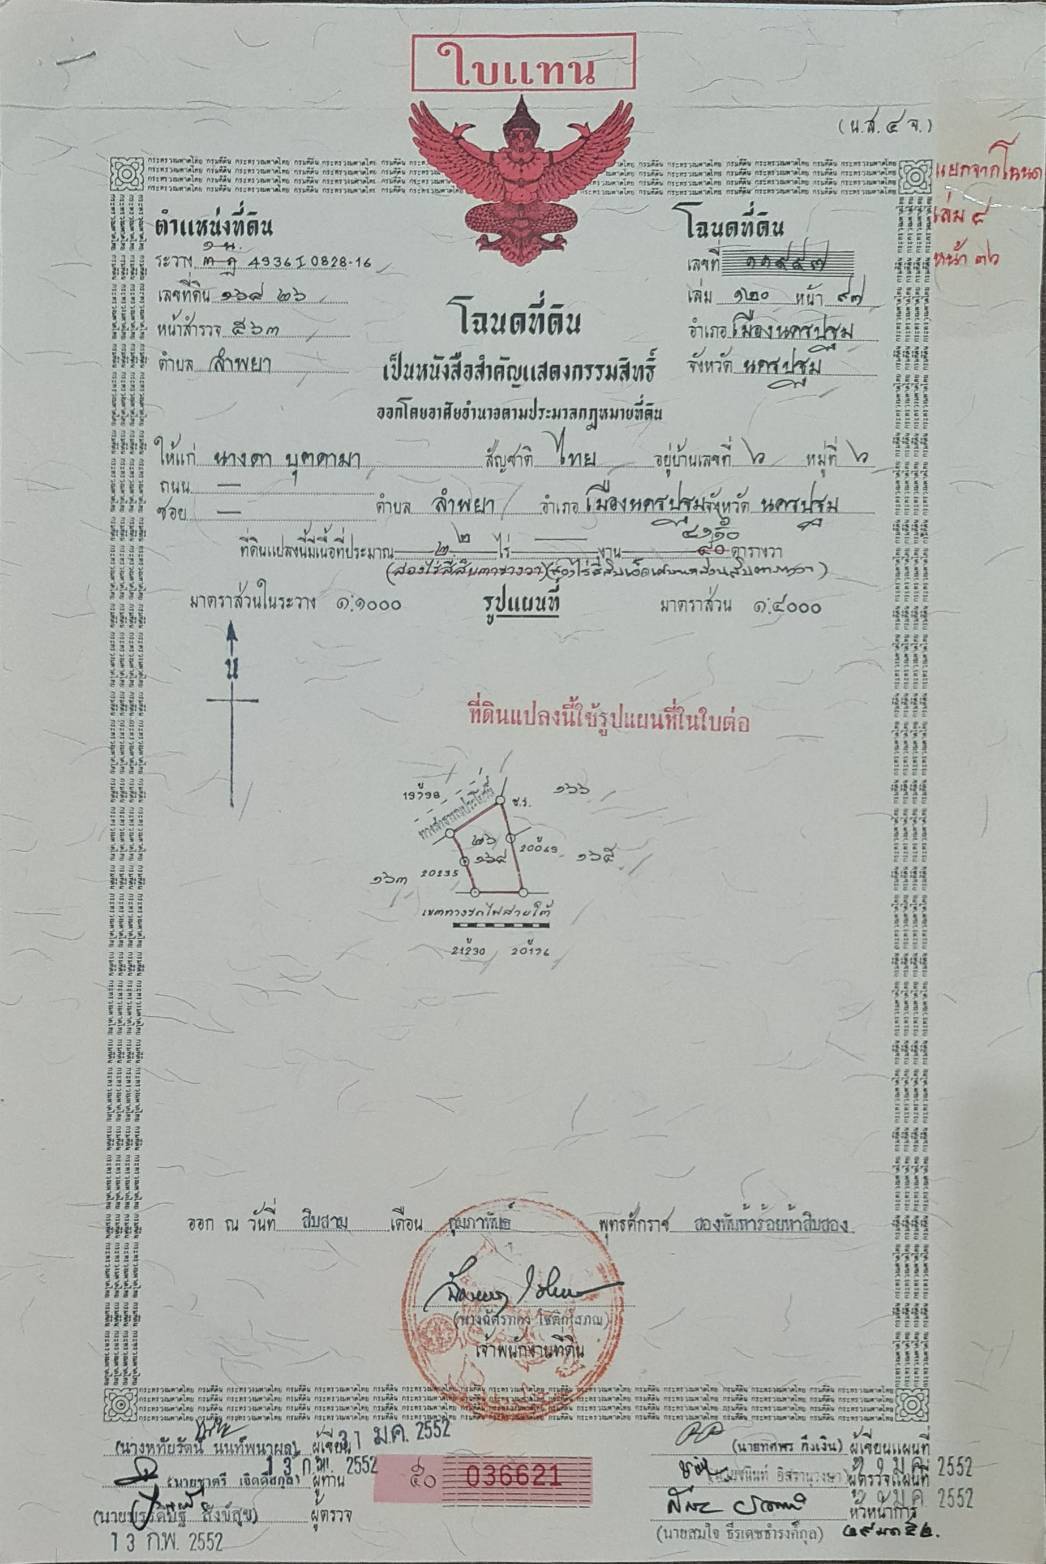 ใบแทน
(น.ส. ๔ จ.)
แยกจากโฉนด
เล่ม ๔
หน้า ๓๖
ตำแหน่งที่ดิน
ระวาง 4936 I 0828-16
เลขที่ดิน ๑๖๔ ๒๖
หน้าสำรวจ ๕๖๓
ตำบล ลำพยา
โฉนดที่ดิน
เลขที่ ๑๑๙๔๗
เล่ม ๑๒๐ หน้า ๙๗
อำเภอ เมืองนครปฐม
จังหวัด นครปฐม
โฉนดที่ดิน
เป็นหนังสือสำคัญแสดงกรรมสิทธิ์
ออกโดยอาศัยอำนาจตามประมวลกฎหมายที่ดิน
ให้แก่ นางดา บุตดามา สัญชาติ ไทย อยู่บ้านเลขที่ ๖ หมู่ที่ ๖
ถนน —
ซอย — ตำบล ลำพยา อำเภอ เมืองนครปฐม จังหวัด นครปฐม
ที่ดินแปลงนี้มีเนื้อที่ประมาณ ๒ ไร่ — งาน ๔๐ ตารางวา
(สองไร่สี่สิบตารางวา)
มาตราส่วนในระวาง ๑:๑๐๐๐ รูปแผนที่ มาตราส่วน ๑:๔๐๐๐
น
ที่ดินแปลงนี้ใช้รูปแผนที่ในใบต่อ
ทางสาธารณประโยชน์
๑๖๖
๒๖
๑๖๔
๑๖๕
๑๖๓
20235
เขตทางรถไฟสายใต้
21230
ออก ณ วันที่ สิบสาม เดือน กุมภาพันธ์ พุทธศักราช สองพันห้าร้อยห้าสิบสอง
(นางฉัตรทอง โชติกุโสภณ)
เจ้าพนักงานที่ดิน
31 ม.ค. 2552
(นางหทัยรัตน์ นนท์พนาผล) ผู้เขียน
13 ก.พ. 2552
(นายชาตรี เจิดดีสกุล) ผู้ทาน
ผู้ตรวจ
13 ก.พ. 2552
๕๐ 036621
(นายทศพร กิ่งเงิน) ผู้เขียนแผนที่
ผู้ตรวจแผนที่
หัวหน้าการ
(นายสมใจ ธีรเดชธำรงค์กุล)